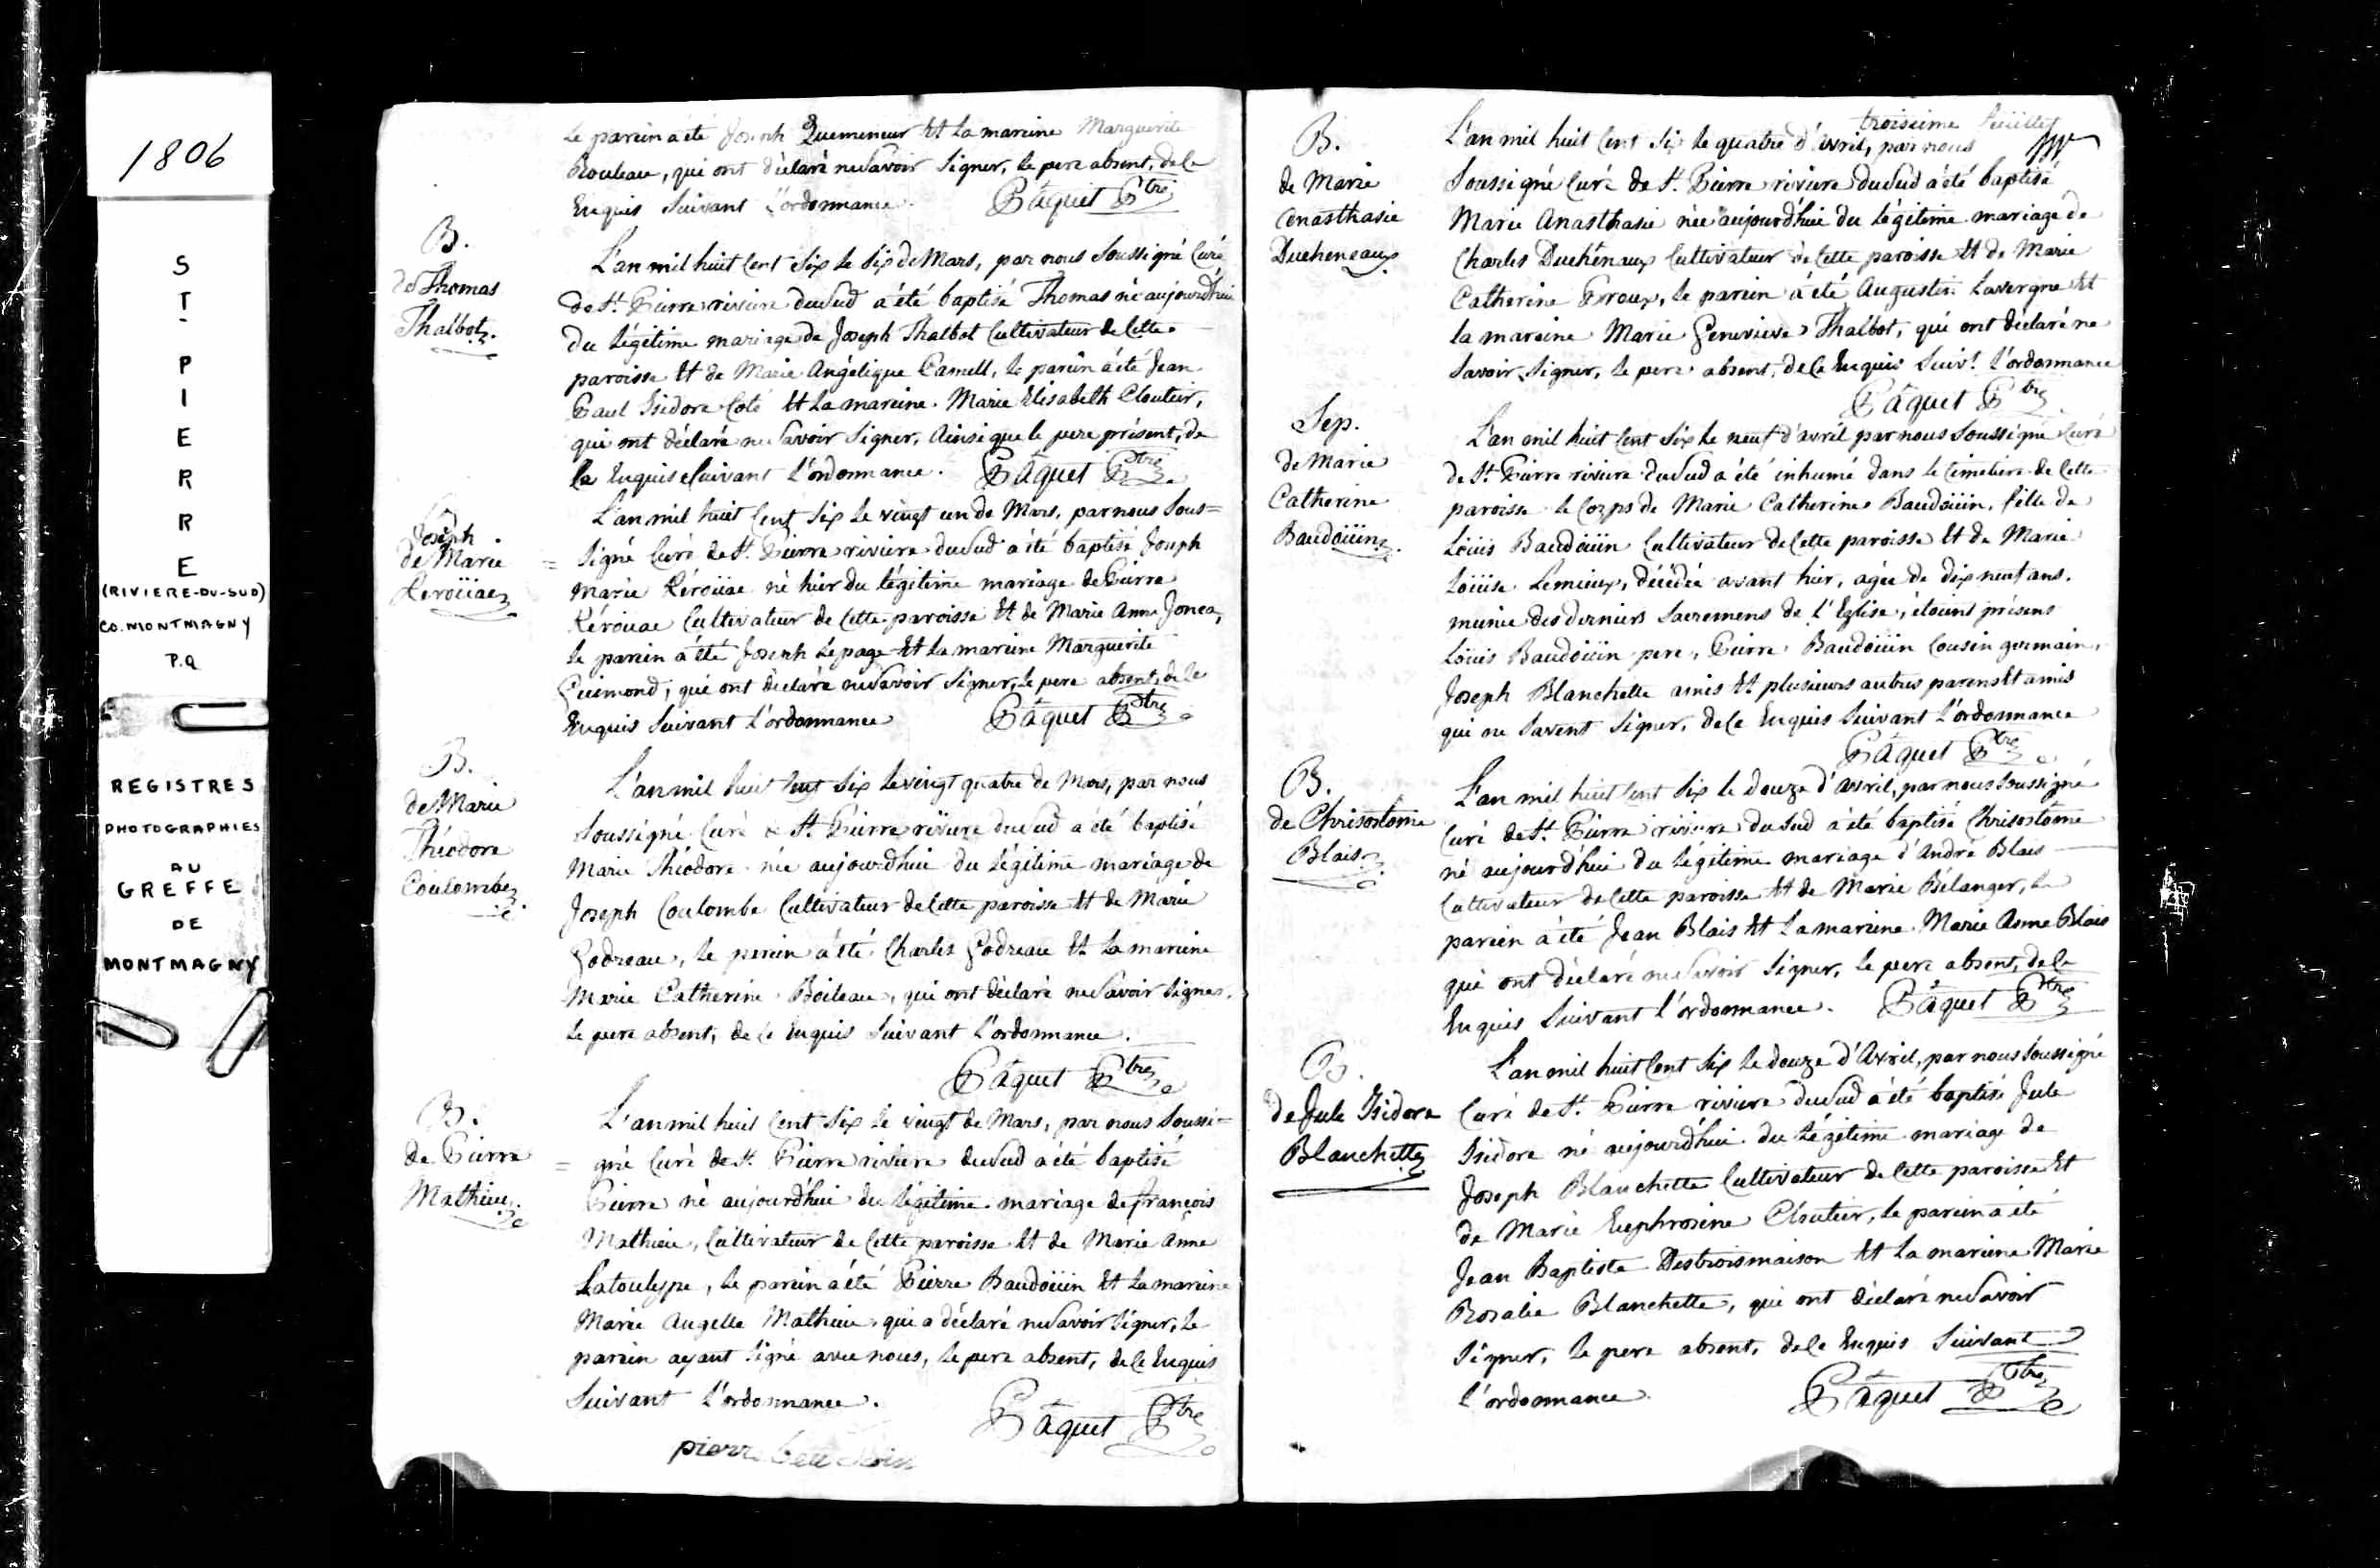 1806
ST-PIERRE
(RIVIERE-DU-SUD)
CO. MONTMAGNY
P.Q.
REGISTRES
PHOTOGRAPHIES
AU
GREFFE
DE
MONTMAGNY
le parein a été Joseph Quemeneur Et la mareine Marguerite
Rouleau, qui ont déclaré ne Savoir Signer, le pere absent, de ce
Enquis Suivant l'ordonnance. Pâquet Ptre
B.
de Thomas
Thalbot.
L'an mil huit Cent Six le Six de Mars, par nous Soussigné Curé
de St. Pierre riviere du Sud a été baptisé Thomas né aujourd'hui
du légitime mariage de Joseph Thalbot Cultivateur de Cette
paroisse Et de Marie Angélique Camell, le parein a été Jean
Paul Isidore Coté Et la mareine Marie Elisabeth Cloutier,
qui ont déclaré ne Savoir Signer, Ainsi que le pere présent, de
Ce Enquis Suivant l'ordonnance. Pâquet Ptre
Joseph
de Marie
Kérouac
L'an mil huit Cent Six le vingt un de Mars, par nous Sous=
= Signé Curé de St. Pierre riviere du Sud a été baptisé Joseph
Marie Kéroüac né hier du légitime mariage de Pierre
Kéroüac Cultivateur de Cette paroisse Et de Marie Anne Jonca,
le parein a été Joseph Lépage Et la mareine Marguerite
Guimond, qui ont déclaré ne Savoir Signer, le pere absent, de Ce
Enquis Suivant l'ordonnance Pâquet Ptre
B.
de Marie
Théodore
Coulombe
L'an mil huit Cent Six le vingt quatre de Mars, par nous
Soussigné Curé de St. Pierre riviere du Sud a été baptisé
Marie Théodore née aujourd'hui du légitime mariage de
Joseph Coulombe Cultivateur de Cette paroisse Et de Marie
Godreau, le parein a été Charles Godreau Et la mareine
Marie Catherine Boileau, qui ont déclaré ne Savoir Signer,
le pere absent, de Ce Enquis Suivant l'ordonnance.
Pâquet Ptre
B.
de Pierre
Mathieu
L'an mil huit Cent Six le vingt de Mars, par nous Soussi=
= gné Curé de St. Pierre riviere du Sud a été baptisé
Pierre né aujourd'hui du légitime mariage de françois
Mathieu, Cultivateur de Cette paroisse Et de Marie Anne
Latoulype, le parein a été Pierre Baudoüin Et la mareine
Marie Angelle Mathieu, qui a déclaré ne Savoir Signer, le
parein ayant Signé avec nous, le pere absent, de Ce Enquis
Suivant l'ordonnance. Pâquet Ptre
pierre
troisieme feüillet
B.
de Marie
Anasthasie
Ducheneaux
L'an mil huit Cent Six le quatre d'Avril, par nous
Soussigné Curé de St. Pierre riviere du Sud a été baptisé
Marie Anasthasie née aujourd'hui du légitime mariage de
Charles Duchênaux Cultivateur de Cette paroisse Et de Marie
Catherine Proux, le parein a été Augustin Lavergne Et
la mareine Marie Genevieve Thalbot, qui ont déclaré ne
Savoir Signer, le pere absent, de Ce Enquis Suivt. l'ordonnance
Pâquet Ptre
Sep.
de Marie
Catherine
Baudoüin
L'an mil huit Cent Six le neuf d'avril par nous Soussigné Curé
de St. Pierre riviere du Sud a été inhumé dans le Cimetiere de Cette
paroisse le Corps de Marie Catherine Baudoüin, fille de
Loüis Baudoüin Cultivateur de Cette paroisse Et de Marie
Loüise Lemieux, décédée avant hier, agée de dix neuf ans.
munie des derniers Sacremens de l'Eglise, étoient présens
Loüis Baudoüin pere, Pierre Baudoüin Cousin germain,
Joseph Blanchette amis Et plusieurs autres parens Et amis
qui ne Savent Signer, de Ce Enquis Suivant l'ordonnance
Pâquet Ptre
B.
de Chrisostome
Blais
L'an mil huit Cent Six le douze d'avril, par nous Soussigné
Curé de St. Pierre riviere du Sud a été baptisé Chrisostome
né aujourd'hui du légitime mariage d'André Blais
Cultivateur de Cette paroisse Et de Marie Bélanger, le
parein a été Jean Blais Et la mareine Marie Anne Blais
qui ont déclaré ne Savoir Signer, le pere absent, de Ce
Enquis Suivant l'ordonnance. Pâquet Ptre
B.
de Jule Isidore
Blanchette
L'an mil huit Cent Six le douze d'Avril, par nous Soussigné
Curé de St. Pierre riviere du Sud a été baptisé Jule
Isidore né aujourd'hui du légitime mariage de
Joseph Blanchette Cultivateur de Cette paroisse Et
de Marie Euphrosine Cloutier, le parein a été
Jean Baptiste Destroismaison Et la mareine Marie
Rosalie Blanchette, qui ont déclaré ne Savoir
Signer, le pere absent, de Ce Enquis Suivant
l'ordonnance. Pâquet Ptre